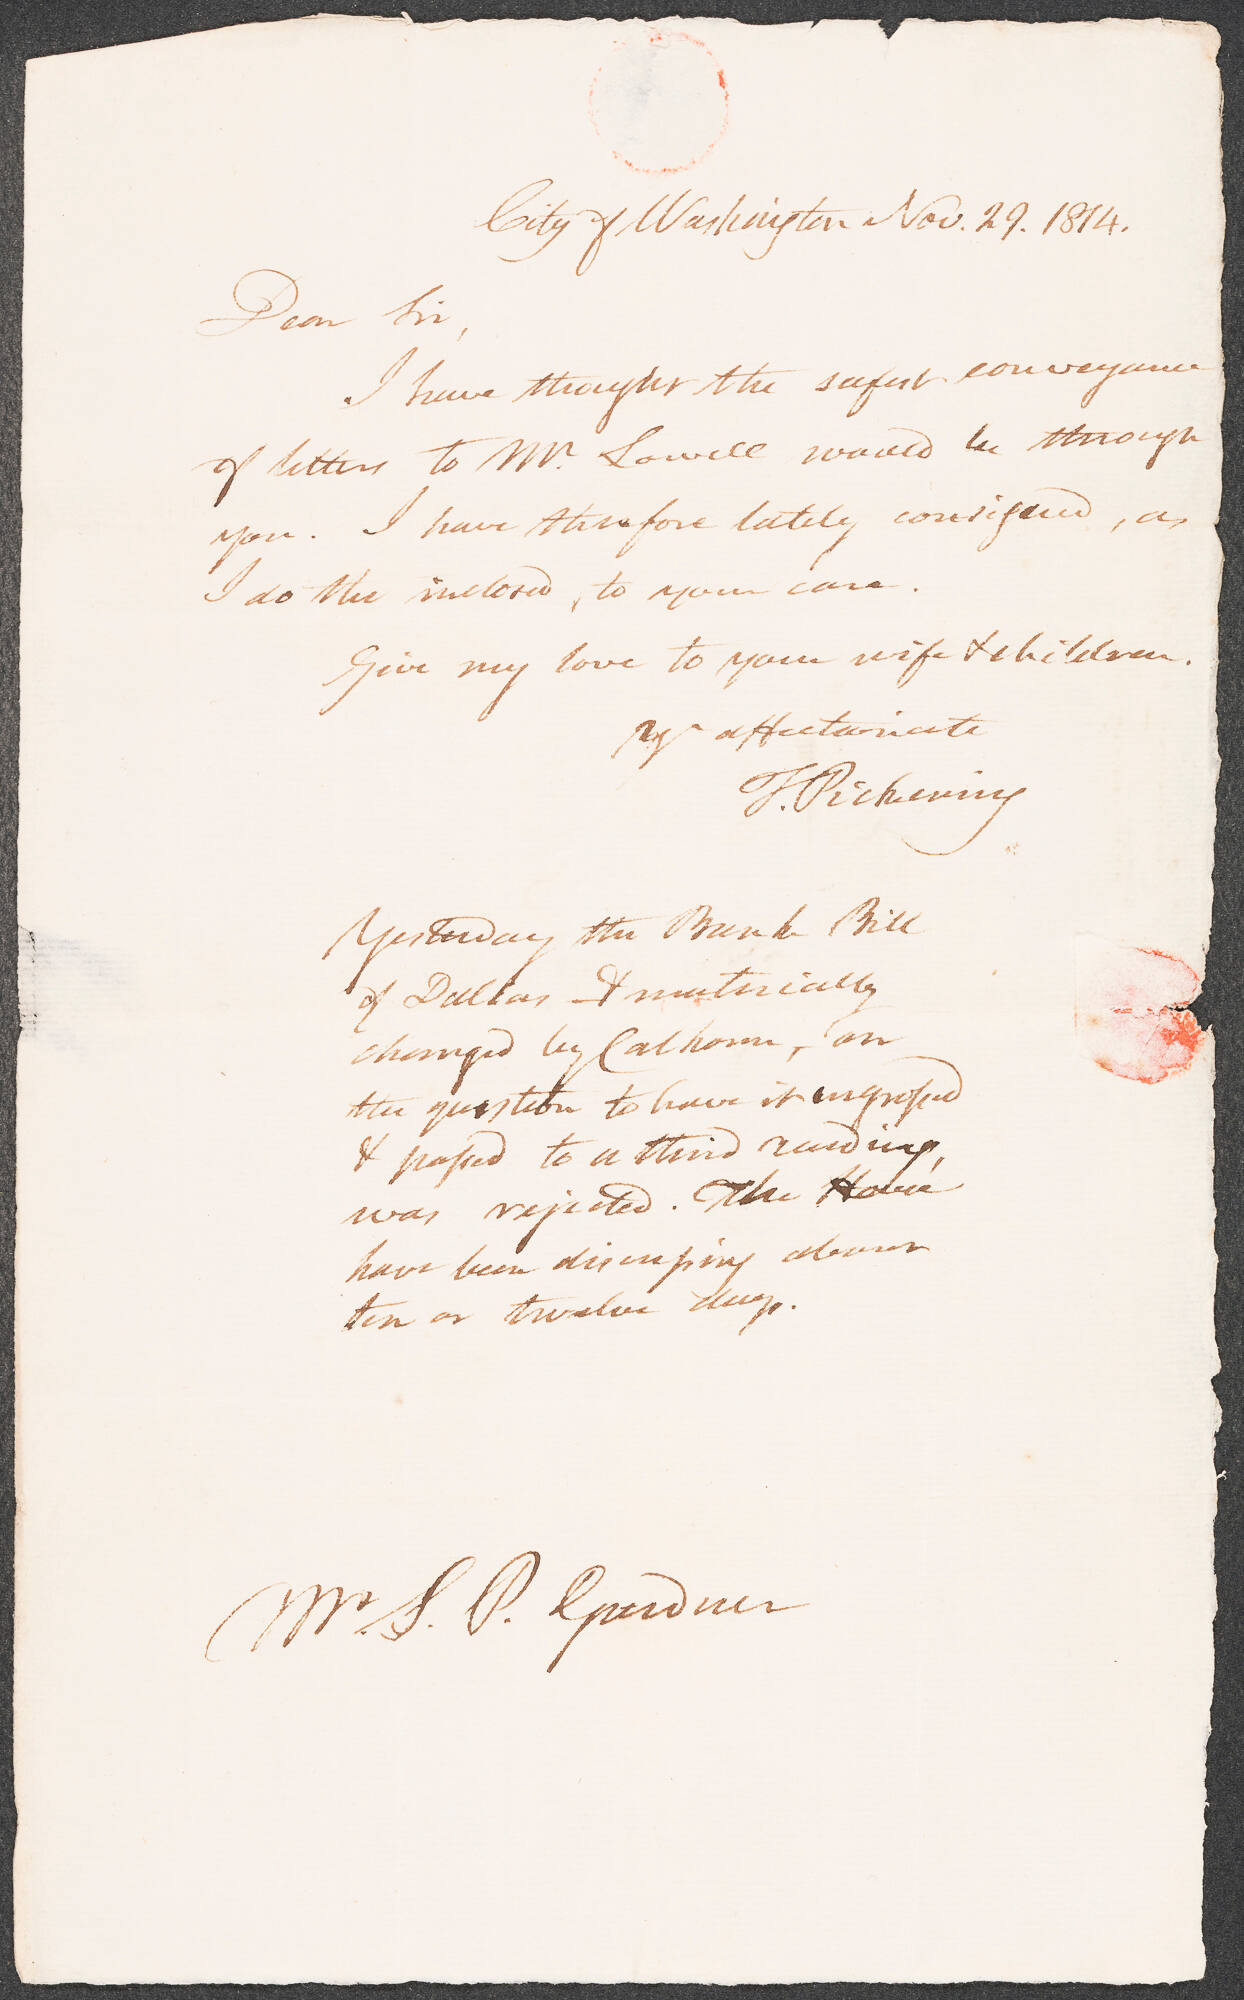 City of Washington Nov. 29. 1814.
Dear Sir,
I have thought the safest conveyance
of letters to Mr. Lowell would be through
you. I have therefore lately consigned, as
I do the inclosed, to your care.
Give my love to your wife & children.
Yr. affectionate
T. Pickering
Yesterday the Bank Bill
of Dallas & materially
changed by Calhoun, on
the question to have it ingrossed
& passed to a third reading,
was rejected. The House
have been discussing about
ten or twelve days.
Mr. S. P. Gardner